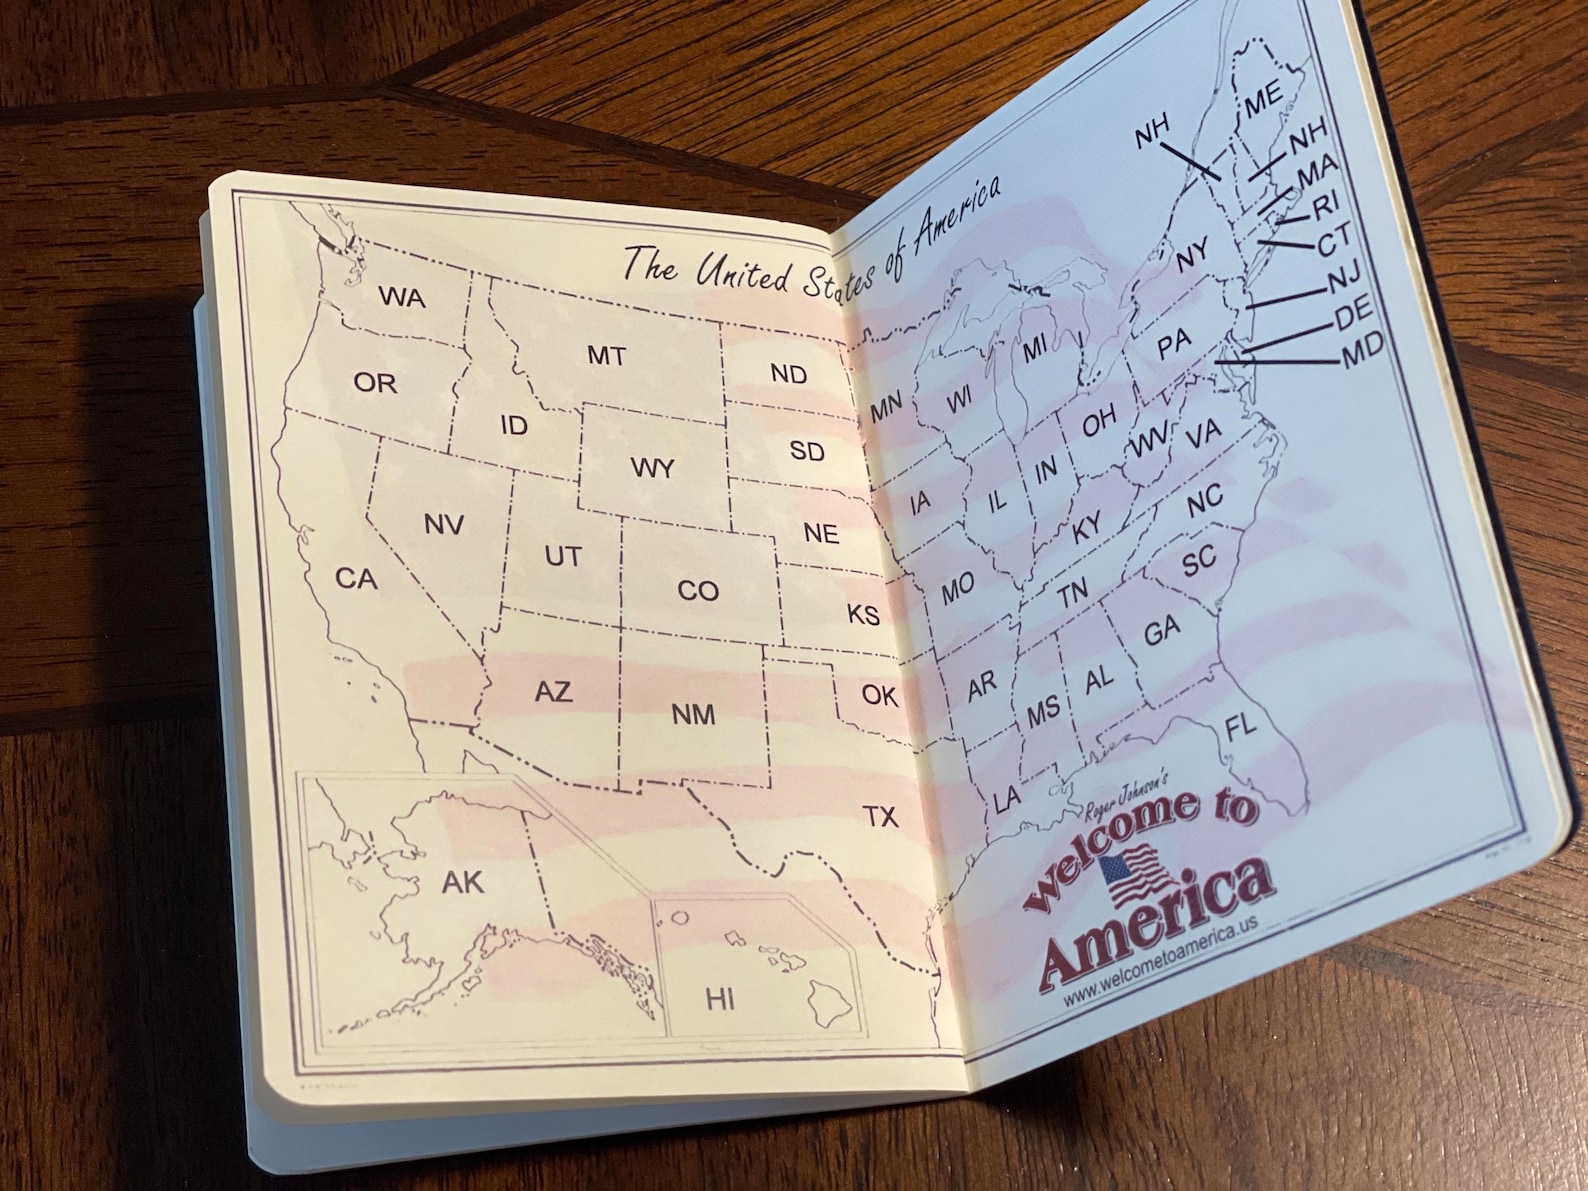 The United States of America
WA
OR
CA
NV
ID
MT
WY
UT
CO
AZ
NM
ND
SD
NE
KS
OK
TX
AK
HI
MN
IA
MO
AR
LA
WI
IL
MI
IN
OH
KY
TN
MS
AL
GA
FL
SC
NC
VA
WV
PA
NY
NH
ME
NH
MA
RI
CT
NJ
DE
MD
Roger Johnson's
Welcome to
America
www.welcometoamerica.us